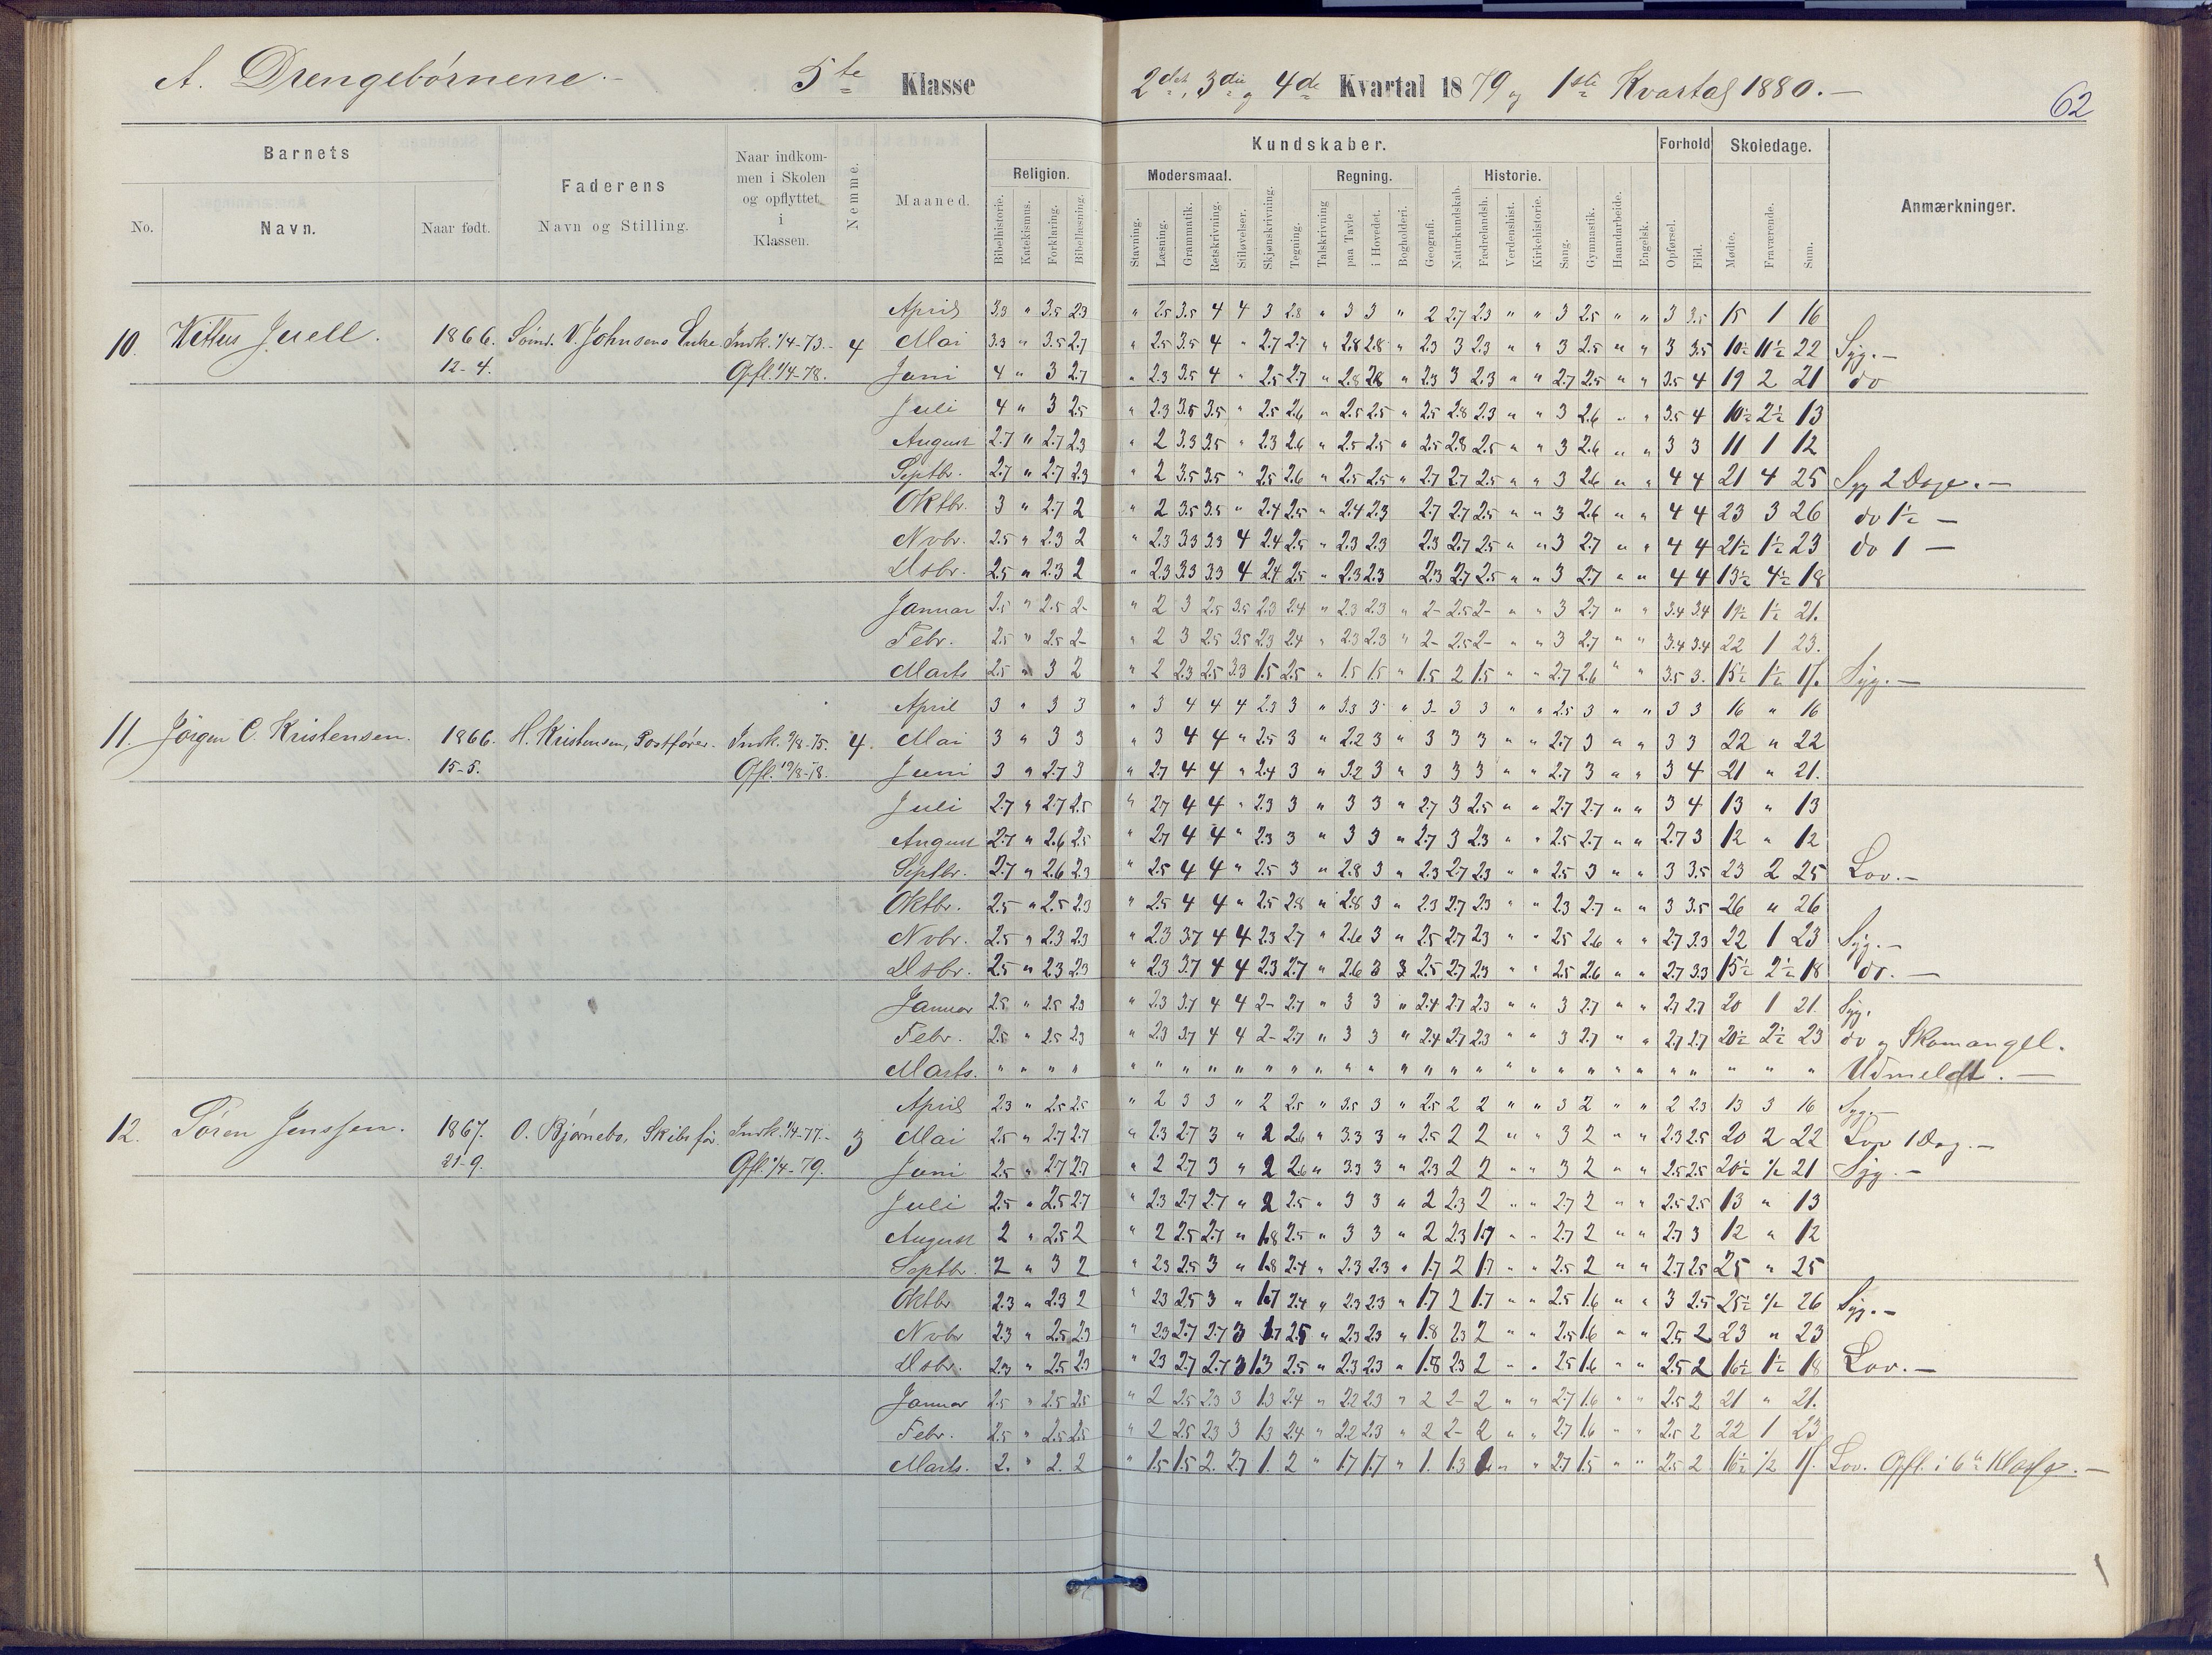 A. Drengebørnene.-
5te Klasse
2det, 3die og 4de Kvartal 1879 og 1ste Kvartal 1880.-
62
Barnets
No.
Navn.
Naar født.
Faderens
Navn og Stilling.
Naar indkom-
men i Skolen
og opflyttet
i
Klassen.
Nemme.
Maaned.
Kundskaber.
Religion.
Bibelhistorie.
Katekismus.
Forklaring.
Bibellæsning.
Modersmaal.
Stavning.
Læsning.
Grammatik.
Retskrivning.
Stiløvelser.
Skjønskrivning.
Tegning.
Regning.
Talskrivning
paa Tavle
i Hovedet.
Bogholderi.
Geografi.
Naturkundskab.
Historie.
Fædrelandsh.
Verdenshist.
Kirkehistorie.
Sang.
Gymnastik.
Haandarbeide.
Engelsk.
Forhold
Opførsel.
Flid.
Skoledage.
Mødte.
Fraværende.
Sum.
Anmærkninger.
10. Vettus Juell. 1866. 12-4. Sømd. V. Johnsens Enke Indk. 1/4-73.- Opfl. 1/4-78. 4
April 3.3 " 3.5 2.3 " 2.5 3.5 4 4 3 2.8 " 3 3 " 2 2.7 2.3 " " 3 2.5 " " 3 3.5 15 1 16
Mai 3.3 " 3.5 2.7 " 2.5 3.5 4 " 2.7 2.7 " 2.8 2.8 " 2.3 3 2.3 " " 3 2.5 " " 3 3.5 10½ 11½ 22 Syg.-
Juni 4 " 3 2.7 " 2.3 3.5 4 " 2.5 2.7 " 2.8 2.8 " 2.3 3 2.3 " " 2.7 2.5 " " 3.5 4 19 2 21 do
Juli 4 " 3 2.5 " 2.3 3.5 3.5 " 2.5 2.6 " 2.5 2.5 " 2.5 2.8 2.3 " " 3 2.6 " " 3.5 4 10½ 2½ 13
August 2.7 " 2.7 2.3 " 2 3.3 3.5 " 2.3 2.6 " 2.5 2.5 " 2.5 2.8 2.5 " " 3 2.6 " " 3 3 11 1 12
Septbr. 2.7 " 2.7 2.3 " 2 3.5 3.5 " 2.5 2.6 " 2.5 2.5 " 2.7 2.7 2.5 " " 3 2.6 " " 4 4 21 4 25 Syg 2 Dage.-
Oktbr. 3 " 2.7 2 " 2 3.5 3.5 " 2.4 2.5 " 2.4 2.3 2.7 2.7 2.5 " " 3 2.6 " " 4 4 23 3 26 do 1½ -
Nvbr. 2.5 " 2.3 2 " 2.3 3.3 3.3 4 2.4 2.5 " 2.3 2.3 2.3 2.7 2.5 " " 3 2.7 " " 4 4 21½ 1½ 23 do 1 -
Dsbr. 2.5 " 2.3 2 " 2.3 3.3 3.3 4 2.4 2.5 " 2.3 2.3 2.3 2.7 2.5 " " 3 2.7 " " 4 4 13½ 4½ 18
Januar 2.5 " 2.5 2- " 2 3 2.5 3.5 2.3 2.4 " 2.3 2.3 " 2- 2.5 2- " " 3 2.7 " " 3.4 3.4 19½ 1½ 21.
Febr. 2.5 " 2.5 2- " 2 3 2.5 3.5 2.3 2.4 " 2.3 2.3 " 2- 2.5 2- " " 3 2.7 " " 3.4 3.4 22 1 23.
Marts 2.5 " 3 2 " 2 2.3 2.5 3.3 1.5 2.5 " 1.5 1.5 " 1.5 2 1.5 " " 2.7 2.6 " " 3.5 3. 15½ 1½ 17. Syg.-
11. Jørgen C. Kristensen. 1866. 15-5. H. Kristensen, Postfører. Indk. 9/8-75. Opfl. 19/8-78. 4.
April 3 " 3 3 " 3 4 4 4 2.3 3 " 3.3 3 " 3- 3 3 " " 2.5 3 " " 3 3 16 " 16
Mai 3 " 3 3 " 3 4 4 " 2.5 3 " 2.2 3 " 3 3 3 " " 2.7 3 " " 3 3 22 " 22
Juni 3 " 2.7 3 " 2.7 4 4 " 2.4 3 " 3.2 3 " 3 3 3 " " 2.7 3 " " 3 4 21 " 21.
Juli 2.7 " 2.7 2.5 " 2.7 4 4 " 2.3 3 " 3 3 " 2.7 3 2.5 " " 2.7 2.7 " " 3 4 13 " 13
August 2.7 " 2.6 2.5 " 2.7 4 4 " 2.3 3 " 3 3 " 2.7 3 2.3 " " 2.5 2.7 " " 2.7 3 12 " 12
Septbr. 2.7 " 2.6 2.3 " 2.5 4 4 " 2.5 3 " 2.8 3 " 2.3 2.7 2.3 " " 2.5 3 " " 3 3.5 23 2 25 Lov.-
Oktbr. 2.5 " 2.5 2.3 " 2.5 4 4 " 2.5 2.8 " 2.8 3 " 2.3 2.7 2.3 " " 2.3 2.7 " " 3 3.5 26 " 26
Nvbr. 2.5 " 2.3 2.3 " 2.3 3.7 4 4 2.3 2.7 " 2.6 3 " 2.5 2.7 2.3 " " 2.5 2.6 " " 2.7 3.3 22 1 23 Syg.-
Dsbr. 2.5 " 2.3 2.3 " 2.3 3.7 4 4 2.3 2.7 " 2.6 3 3 2.5 2.7 2.3 " " 2.5 2.6 " " 2.7 3.3 15½ 2½ 18 do.-
Januar 2.5 " 2.5 2.3 " 2.3 3.7 4 4 2- 2.7 " 3 3 " 2.4 2.7 2.3 " " 3 2.7 " " 2.7 2.7 20 1 21. Syg.
Febr. 2.5 " 2.5 2.3 " 2.3 3.7 4 4 2- 2.7 " 3 3 " 2.4 2.7 2.3 " " 3 2.7 " " 2.7 2.7 20½ 2½ 23 do og Skomangel.
Marts. " " " " " " " " " " " " " " " " " " " " " " " " " " " " " Udmeldt.-
12. Søren Jenssen. 1867. 21-9. O. Bjørnebo, Skibsfør. Indk. 1/4-77.- Opfl. 1/4-79. 3
April 2.3 " 2.5 2.5 " 2 3 3 " 2 2.5 " 3.5 3 " 2.5 2 2 " " 3 2 " " 2 2.3 13 3 16 Syg.-
Mai 2.5 " 2.7 2.7 " 2.3 2.7 3 " 2 2.6 " 3.3 3 " 2.5 2 2 " " 3 2 " " 2.3 2.5 20 2 22 Lov 1 Dag.-
Juni 2.5 " 2.7 2.7 " 2 2.7 3 " 2 2.6 " 3.3 3 " 2.3 2 2 " " 3 2 " " 2.5 2.5 20½ ½ 21 Syg.-
Juli 2.5 " 2.5 2.7 " 2.3 2.7 2.7 " 2 2.5 " 3 3 " 2 2.3 2 " " 2.7 2 " " 2.5 2.5 13 " 13
August 2 " 2.5 2 " 2 2.5 2.7 " 1.8 2.5 " 3 3 " 2 2.3 1.7 " " 2.7 2 " " 2.7 3 12 " 12
Septbr 2 " 3 2 " 2.3 2.5 3 " 1.8 2.4 " 2.3 2.3 " 1.7 2 1.7 " " 2.5 2 " " 2.7 2.5 25 " 25
Oktbr 2.3 " 2.3 2 " 2.3 2.5 3 " 1.7 2.4 " 2.3 2.3 " 1.7 2 1.7 " " 2.5 1.6 " " 3 2.5 25½ ½ 26 Syg.-
Nvbr 2.3 " 2.5 2.3 " 2.3 2.7 2.7 3 1.7 2.5 " 2.3 2.3 " 1.8 2.3 2 " " 2.5 1.6 " " 2.5 2 23 " 23
Dsbr. 2.3 " 2.5 2.3 " 2.3 2.7 2.7 3 1.3 2.5 " 2.3 2.3 " 1.8 2.3 2 " " 2.5 1.6 " " 2.5 2 16½ 1½ 18 Lov.-
Januar 2.5 " 2.5 2.5 " 2 2.5 2.3 3 1.3 2.4 " 2.2 2.3 " 2 2- 2 " " 2.7 1.6 " " 2.5 2 21 " 21.
Febr. 2.5 " 2.5 2.5 " 2 2.5 2.3 3 1.3 2.4 " 2.2 2.3 " 2 2- 2 " " 2.7 1.6 " " 2.5 2 22 1 23
Marts. 2. " 2. 2 " 1.5 1.5 2. 2.7 1. 2 " 1.7 1.7 " 1. 1.3 " " 2.7 1.5 " " 2.5 2 16½ ½ 17. Lov. Opfl. i 6te Klasse.-